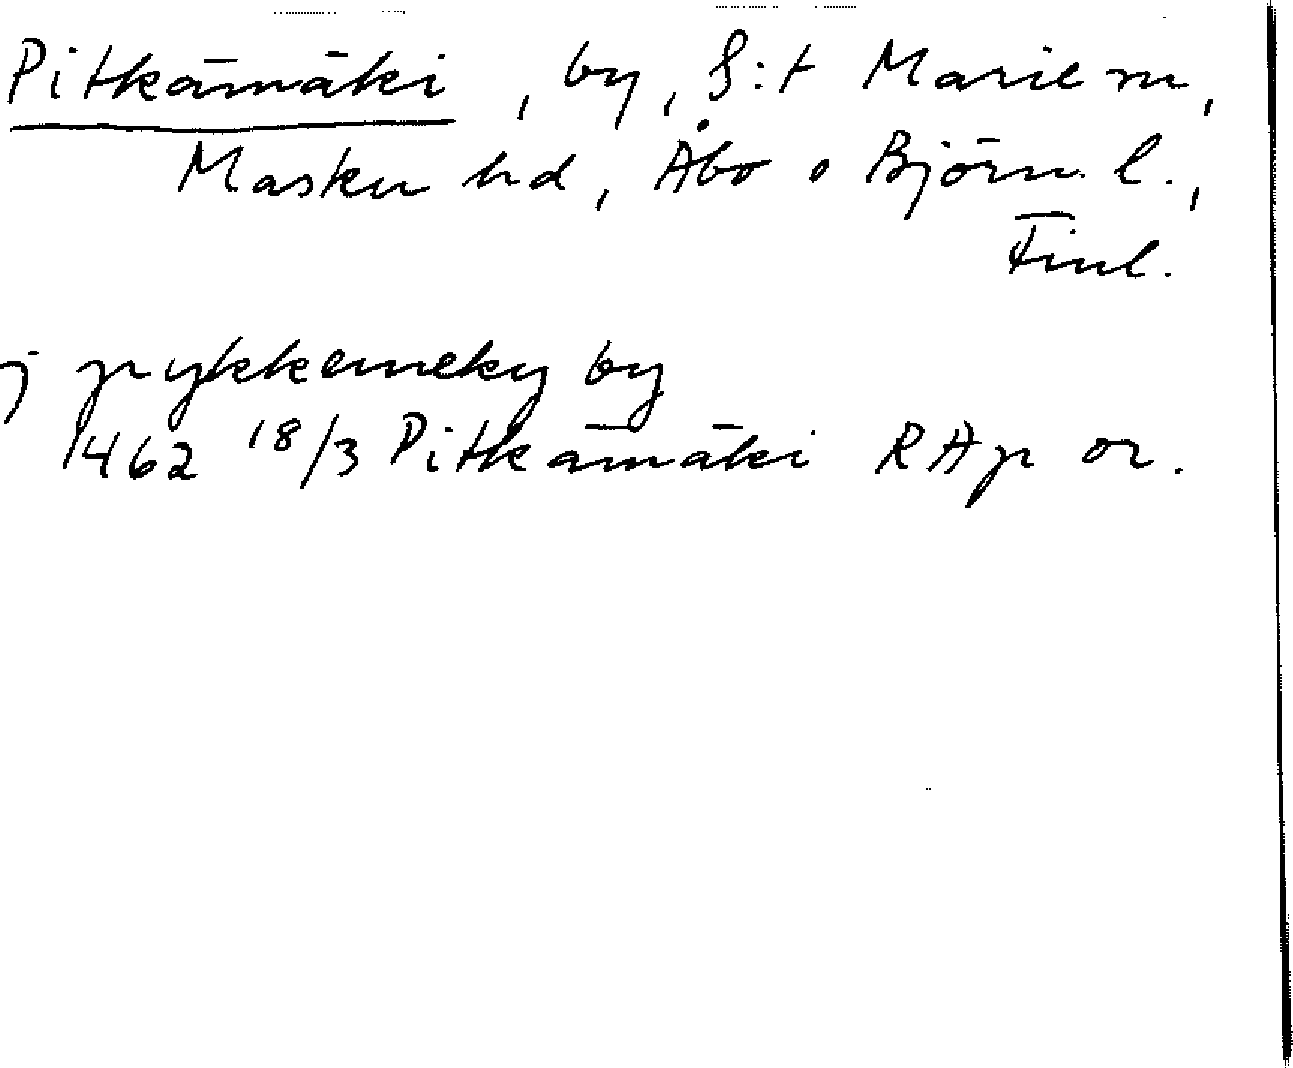 Pitkämäki, by, S:t Marie sn,
Masku hd, Åbo o Björn. l.,
Finl.
j pykkemeky by
1462 18/3 Pitkämäki RAp or.